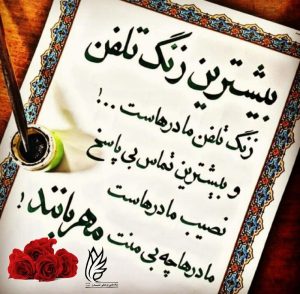 بیشترین زنگ تلفن
زنگ تلفن مادرهاست ...!
و بیشترین تماس بی پاسخ
نصیب مادرهاست
مادرها چه بی منت مهربانند !